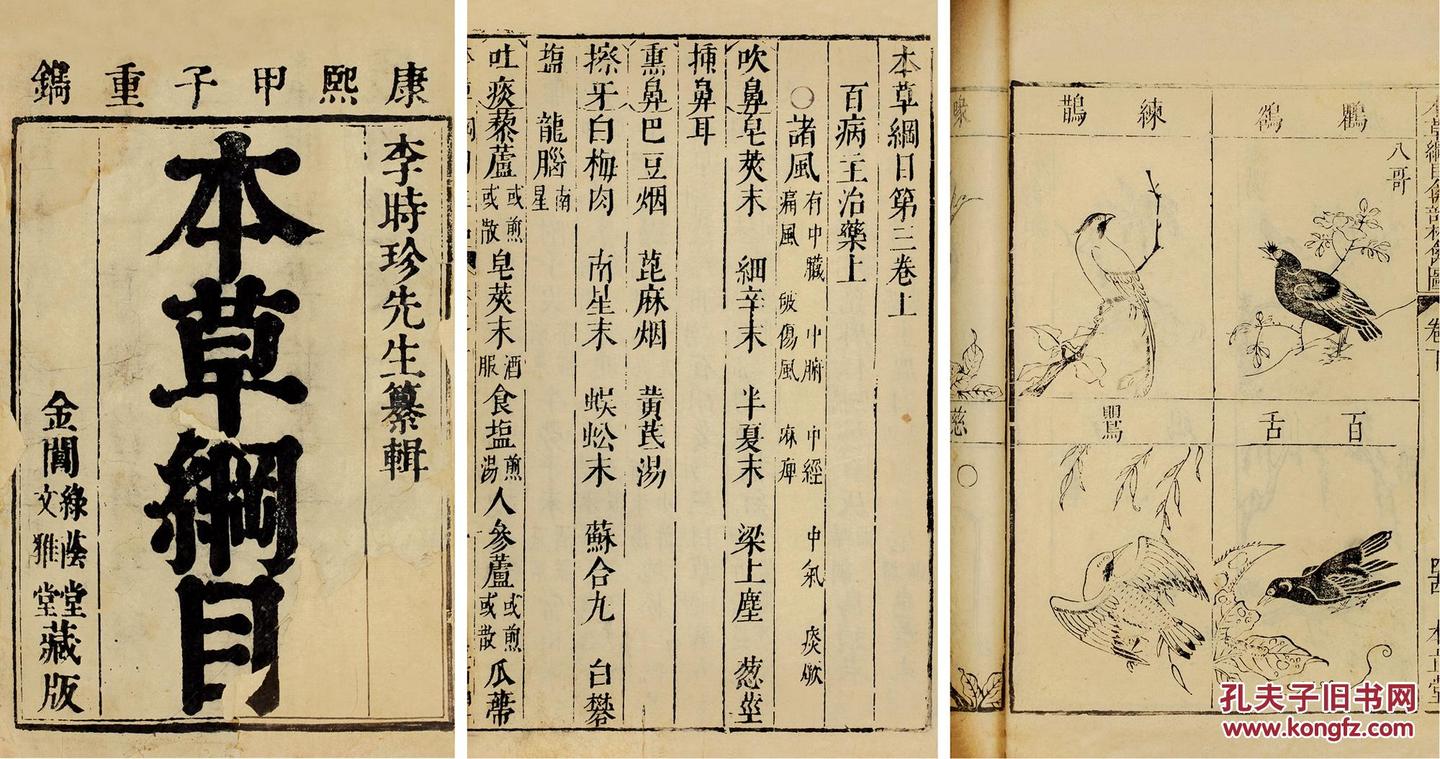 康熙甲子重鐫
李時珍先生纂輯
本草綱目
金閶綠蔭堂文雅堂藏版
本草綱目第三卷上
百病主治藥上
○諸風有中臟 中腑 中經 中氣 痰厥 痛風 破傷風 麻痺
吹鼻皂莢末 細辛末 半夏末 梁上塵 葱莖
挿鼻耳
熏鼻巴豆烟 萞麻烟 黃芪湯
擦牙白梅肉 南星末 蜈蚣末 蘇合丸 白礬
塩 龍腦南星
吐痰藜蘆或煎或散皂莢末酒服食塩煎湯人參蘆或煎或散瓜蒂
鸜鵒
八哥
練鵲
百舌
鸎
孔夫子旧书网
www.kongfz.com